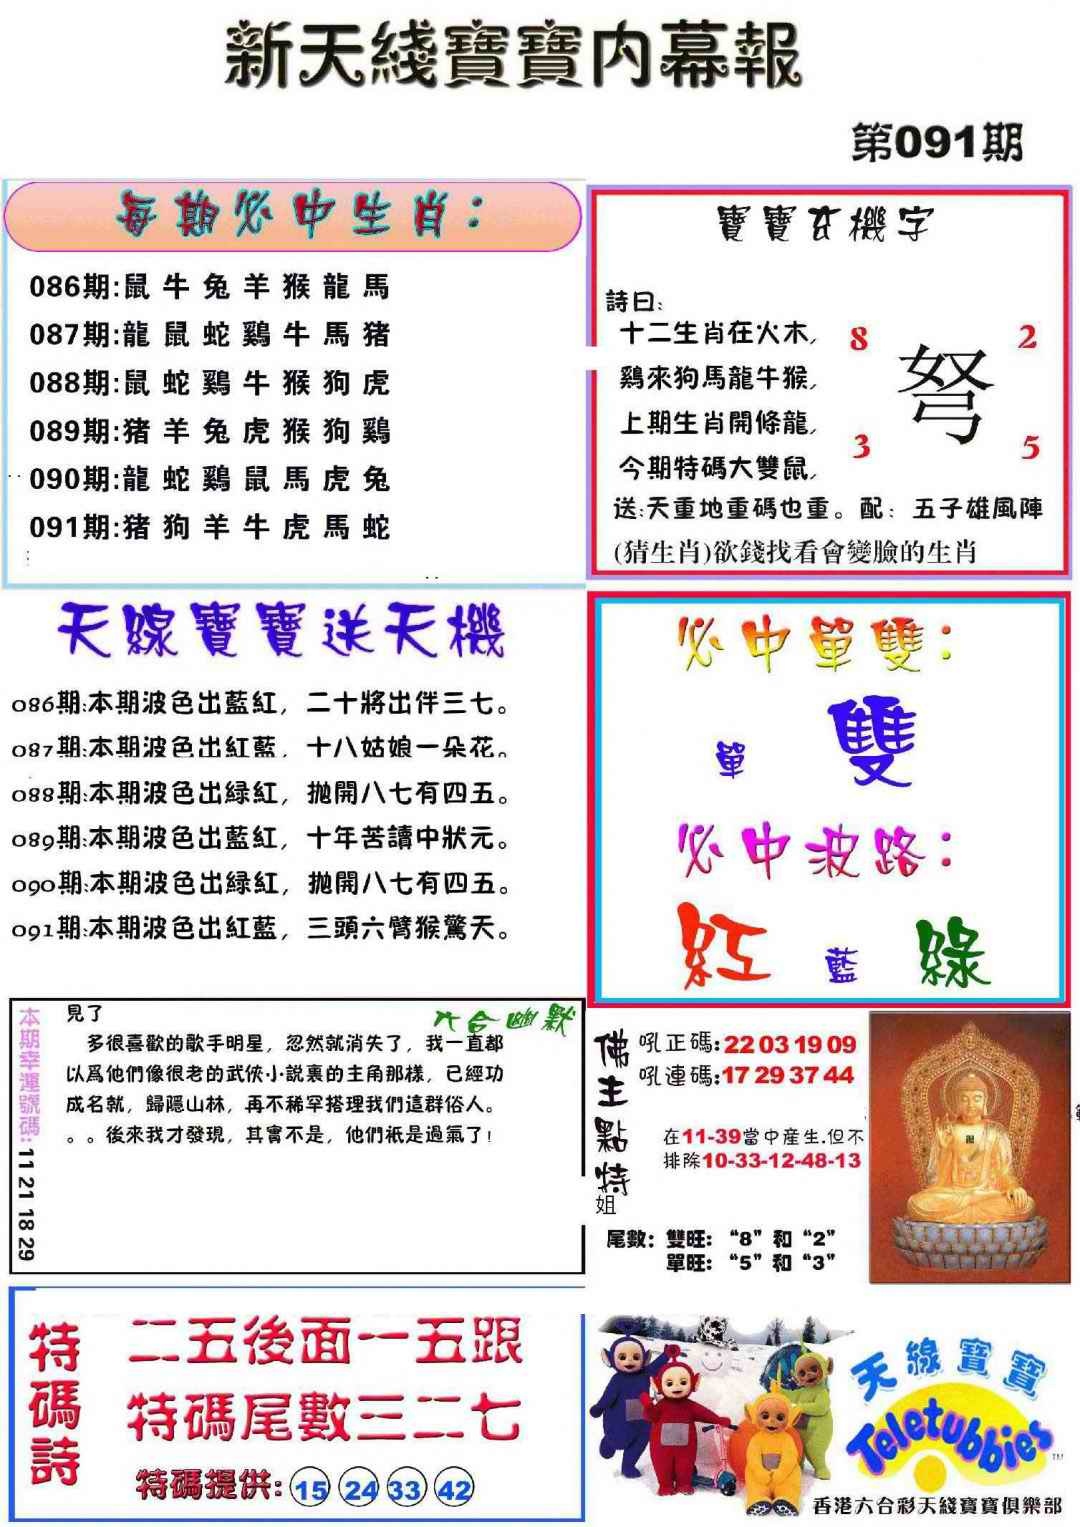 新天綫寶寶内幕報
第091期
每期必中生肖：
086期:鼠牛兔羊猴龍馬
087期:龍鼠蛇鷄牛馬猪
088期:鼠蛇鷄牛猴狗虎
089期:猪羊兔虎猴狗鷄
090期:龍蛇鷄鼠馬虎兔
091期:猪狗羊牛虎馬蛇
寶寶玄機字
詩曰:
十二生肖在火木,
鷄來狗馬龍牛猴,
上期生肖開條龍,
今期特碼大雙鼠,
8 2
弩
3 5
送:天重地重碼也重。配：五子雄風陣
(猜生肖)欲錢找看會變臉的生肖
天線寶寶送天機
086期:本期波色出藍紅，二十將出伴三七。
087期:本期波色出紅藍，十八姑娘一朵花。
088期:本期波色出緑紅，抛開八七有四五。
089期:本期波色出藍紅，十年苦讀中狀元。
090期:本期波色出緑紅，抛開八七有四五。
091期:本期波色出紅藍，三頭六臂猴驚天。
必中單雙：
單 雙
必中波路：
紅 藍 綠
本期幸運號碼:11 21 18 29
六合幽默
見了
多很喜歡的歌手明星，忽然就消失了，我一直都
以爲他們像很老的武俠小説裏的主角那樣，已經功
成名就，歸隱山林，再不稀罕搭理我們這群俗人。
。。後來我才發現，其實不是，他們衹是過氣了!
佛主點特
姐
吼正碼:22 03 19 09
吼連碼:17 29 37 44
在11-39當中産生.但不
排除10-33-12-48-13
尾數：雙旺：“8”和“2”
單旺：“5”和“3”
特碼詩
二五後面一五跟
特碼尾數三二七
特碼提供: 15 24 33 42
天線寶寶
Teletubbies
TM
香港六合彩天綫寶寶俱樂部